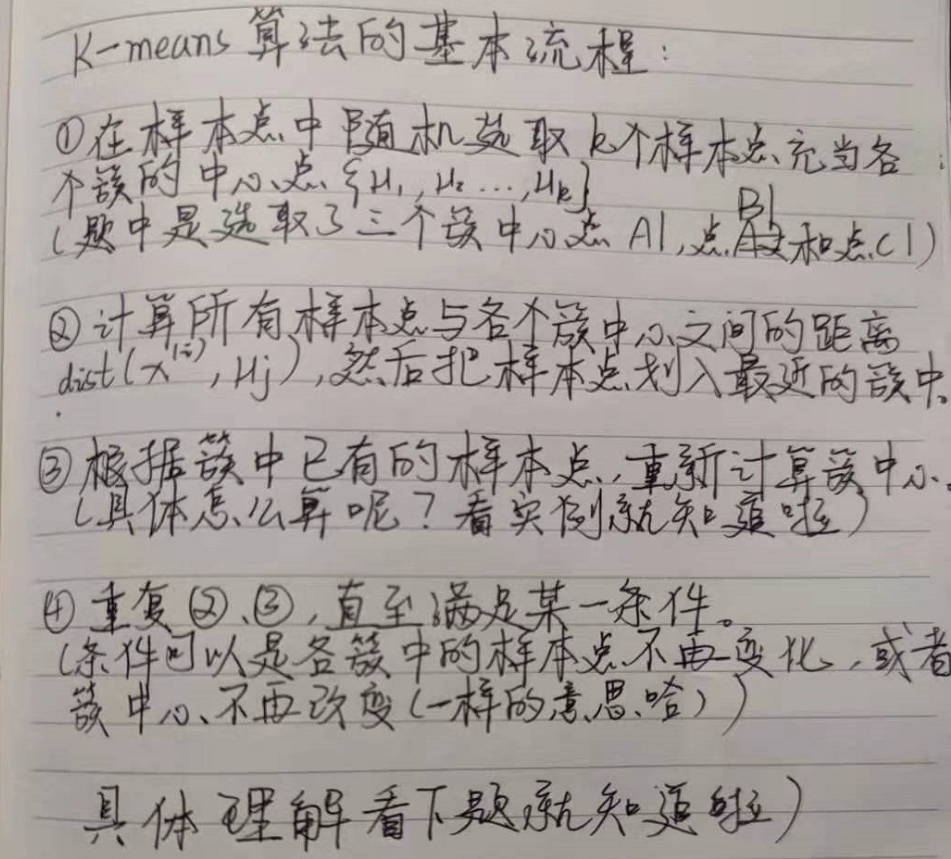 K-means算法的基本流程:
①在样本点中随机选取k个样本点充当各
个簇的中心点{μ₁,μ₂…,μₖ}
B1
(题中是选取了三个簇中心点A1,点和点C1)
②计算所有样本点与各个簇中心之间的距离
dist(x⁽ⁱ⁾,μj),然后把样本点划入最近的簇中。
③根据簇中已有的样本点,重新计算簇中心。
(具体怎么算呢?看实例就知道啦)
④重复②、③,直至满足某一条件。
(条件可以是各簇中的样本点不再变化,或者
簇中心不再改变(一样的意思哈))
具体理解看下题就知道啦)